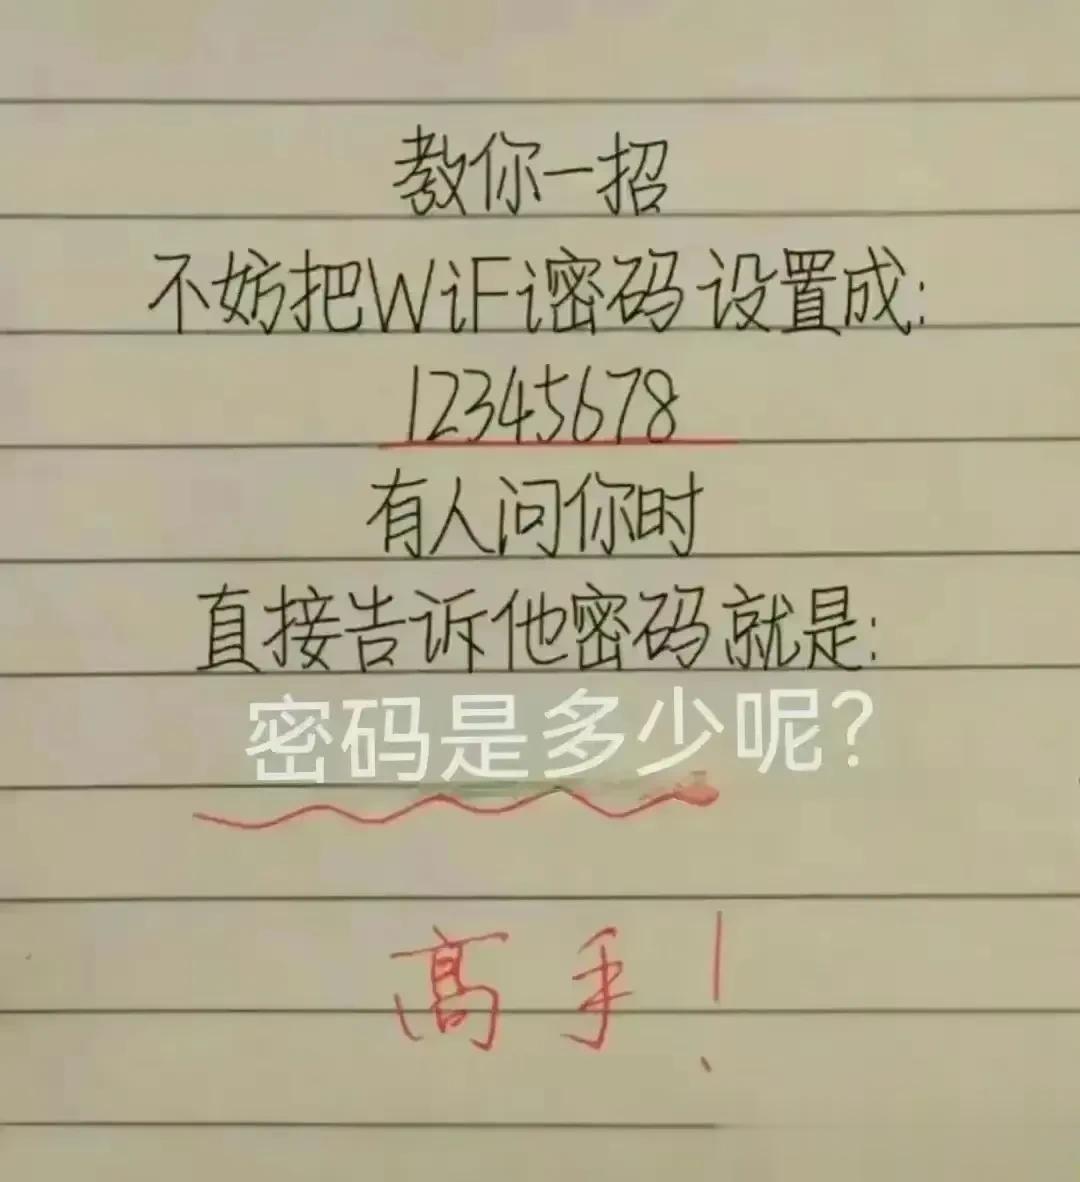 教你一招
不妨把WiFi密码设置成:
12345678
有人问你时
直接告诉他密码就是:
密码是多少呢?
高手!